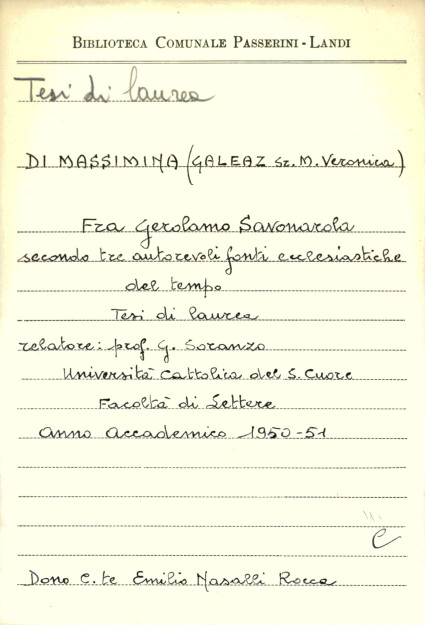 BIBLIOTECA COMUNALE PASSERINI - LANDI
Tesi di laurea
DI MASSIMINA (GALEAZ Sr. M. Veronica)
Fra Gerolamo Savonarola
secondo tre autorevoli fonti ecclesiastiche
del tempo
Tesi di laurea
relatore: prof. G. Soranzo
Università Cattolica del S. Cuore
Facoltà di Lettere
Anno Accademico 1950-51
C
Dono C.te Emilio Nasalli Rocca